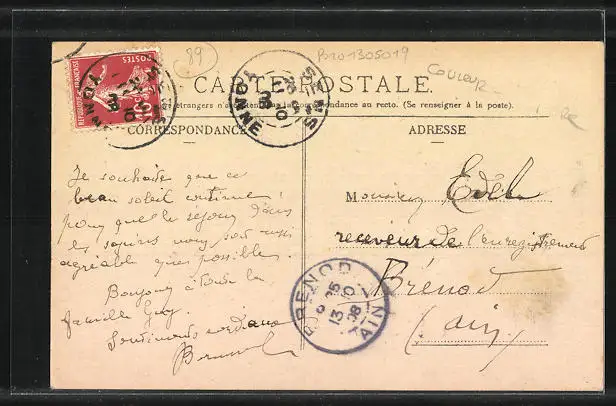 89
B101305019
COULEUR
REPUBLIQUE FRANÇAISE
POSTES
10
SENS
YONNE
SENS
YONNE
CARTE POSTALE
étrangers n'acceptent pas la correspondance au recto. (Se renseigner à la poste).
CORRESPONDANCE
ADRESSE
Je souhaite que ce
beau soleil continue
pour que le séjour dans
les sapins vous soit aussi
agréable que possible.
Bonjour à toute la
famille Guy.
Sentiments cordiaux
Monsieur
receveur de l'enregistrement
Brénod
(Ain)
BRENOD
13 10
08
AIN